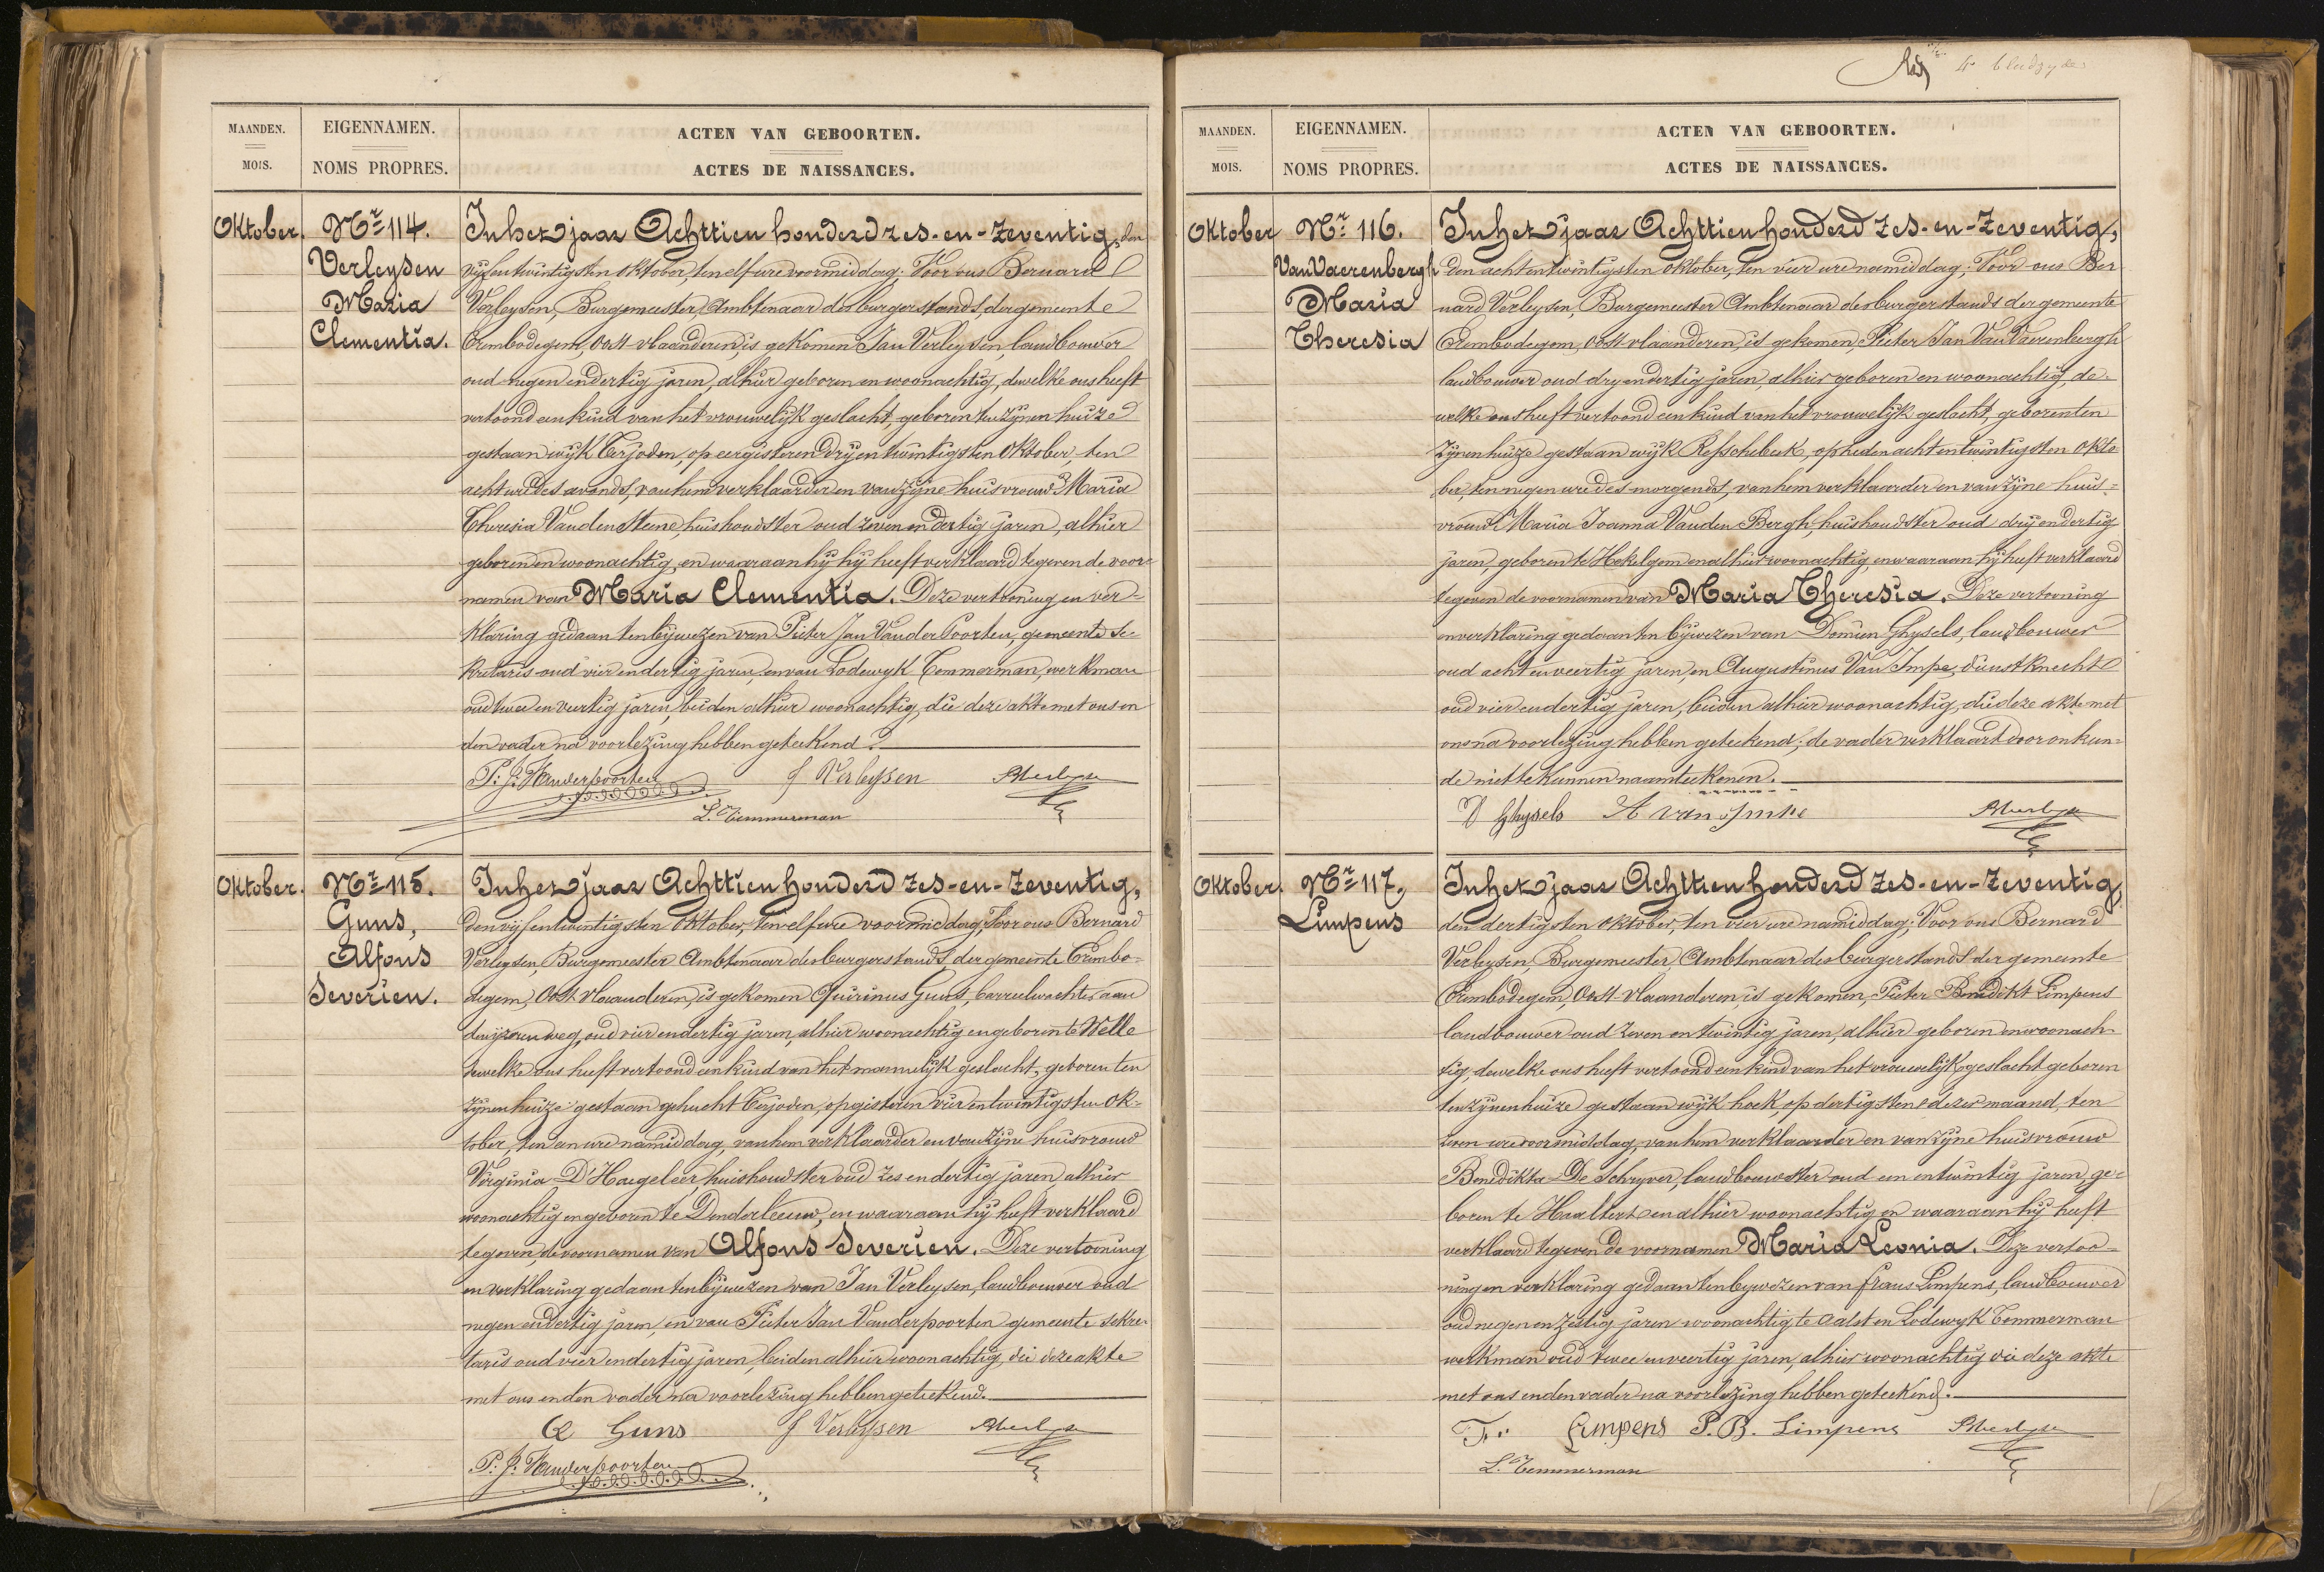 MAANDEN.
MOIS.
EIGENNAMEN.
NOMS PROPRES.
ACTEN VAN GEBOORTEN.
ACTES DE NAISSANCES.
Oktober.
Nr 114.
Verleysen
Maria
Clementia.
In het jaar Achttien honderd zes-en-zeventig, den
vijfentwintigsten Oktober, ten elf ure voormiddag: Voor ons Bernard
Verleysen, Burgemeester, Ambtenaar des burgerstands, der gemeente
Erembodegem, Oost-vlaanderen, is gekomen Jan Verleysen, landbouwer
oud negen endertig jaren, alhier geboren en woonachtig, dewelke ons heeft
vertoond een kind van het vrouwelijk geslacht, geboren ten zijnen huize
gestaan wijk Terjoden, op eergisteren dryentwintigsten Oktober, ten
acht ure des avonds, van hem verklaarder en van zijne huisvrouw Maria
Theresia Vanden Steene, huishoudster oud zeven endertig jaren, alhier
geboren en woonachtig, en waaraan hij hij heeft verklaard te geven de voor-
namen van Maria Clementia. Deze vertooning en ver-
klaring gedaan ten bijwezen van Pieter Jan Vander Poorten, gemeente se-
kretaris oud vier endertig jaren, en van Lodewyk Temmerman, werkman
oud twee en veertig jaren, beiden alhier woonachtig, die deze akte met ons en
den vader na voorlezing hebben geteekend.
P: J: Vanderpoorten J Verleysen
L. Temmerman
Oktober.
Nr 115.
Guns,
Alfons
Severien.
In het jaar Achttien honderd zes-en-zeventig,
den vijfentwintigsten Oktober, ten elf ure voormiddag; Voor ons Bernard
Verleysen, Burgemeester Ambtenaar des burgerstands, der gemeente Erembo-
degem, Oost-vlaanderen, is gekomen Quirinus Guns, barreelwachter aan
den ijzeren weg, oud vier endertig jaren, alhier woonachtig en geboren te Welle
dewelke ons heeft vertoond een kind van het mannelijk geslacht, geboren ten
zijnen huize gestaan gehucht Terjoden, op gisteren vierentwintigsten Ok-
tober, ten een ure namiddag, van hem verklaarder en van zijne huisvrouw
Virginia D'Haegeleer, huishoudster oud zes endertig jaren, alhier
woonachtig en geboren te Denderleeuw, en waaraan hij heeft verklaard
te geven, de voornamen van Alfons Severien. Deze vertooning
en verklaring gedaan ten bijwezen van Jan Verleysen, landbouwer oud
negen endertig jaren, en van Pieter Jan Vanderpoorten gemeente sekre-
taris oud vier endertig jaren, beiden alhier woonachtig, die deze akte
met ons en den vader na voorlezing hebben geteekend.
Q Guns J Verleysen
P: J: Vanderpoorten
4 bladzyden
MAANDEN.
MOIS.
EIGENNAMEN.
NOMS PROPRES.
ACTEN VAN GEBOORTEN.
ACTES DE NAISSANCES.
Oktober
Nr 116.
Van Vaerenbergh
Maria
Theresia
In het jaar Achttien honderd zes-en-zeventig,
den achtentwintigsten Oktober, ten vier ure namiddag: Voor ons Ber
nard Verleysen, Burgemeester Ambtenaar des burgerstands der gemeente
Erembodegem, Oost-vlaanderen, is gekomen, Pieter Jan Van Vaerenbergh
landbouwer oud dry endertig jaren, alhier geboren en woonachtig, de-
welke ons heeft vertoond een kind van het vrouwelijk geslacht, geboren ten
zijnen huize gestaan wijk Resschebeek, op heden achtentwintigsten Okto
ber, ten negen ure des morgends, van hem verklaarder en van zijne huis-
vrouw Maria Joanna Vanden Bergh, huishoudster oud dry endertig
jaren, geboren te Hekelgem en alhier woonachtig, en waaraan hij heeft verklaard
te geven de voornamen van Maria Theresia. Deze vertooning
en verklaring gedaan ten bijwezen van Domien Ghysels, landbouwer
oud acht en veertig jaren, en Augustinus Van Impe, dienstknecht
oud vier endertig jaren, beiden alhier woonachtig, die deze akte met
ons na voorlezing hebben geteekend; de vader verklaart door onkun-
de niet te kunnen naamteekenen.
D Ghysels A van Impe
Oktober.
Nr 117.
Limpens
In het jaar Achttien honderd zes-en-zeventig,
den dertigsten Oktober, ten vier ure namiddag; Voor ons Bernard
Verleysen, Burgemeester, Ambtenaar des burgerstands der gemeente
Erembodegem, Oost-vlaanderen is gekomen, Pieter Benedikt Limpens
landbouwer oud zeven en twintig jaren, alhier geboren en woonach-
tig, dewelke ons heeft vertoond een kind van het vrouwelijk geslacht geboren
ten zijnen huize gestaan wijk hoek, op dertigsten dezer maand, ten
zeven ure voormiddag, van hem verklaarder en van zijne huisvrouw
Benedikta De Schryver, landbouwster oud een entwintig jaren, ge-
boren te Haaltert en alhier woonachtig en waaraan hij heeft
verklaard te geven de voornamen Maria Leonia. Deze vertoo-
ning en verklaring gedaan ten bijwezen van Frans Limpens, landbouwer
oud negen en zestig jaren woonachtig te Aalst en Lodewyk Temmerman
werkman oud twee en veertig jaren, alhier woonachtig die deze akte
met ons en den vader na voorlezing hebben geteekend.
Fr. Limpens P. B. Limpens
L. Temmerman